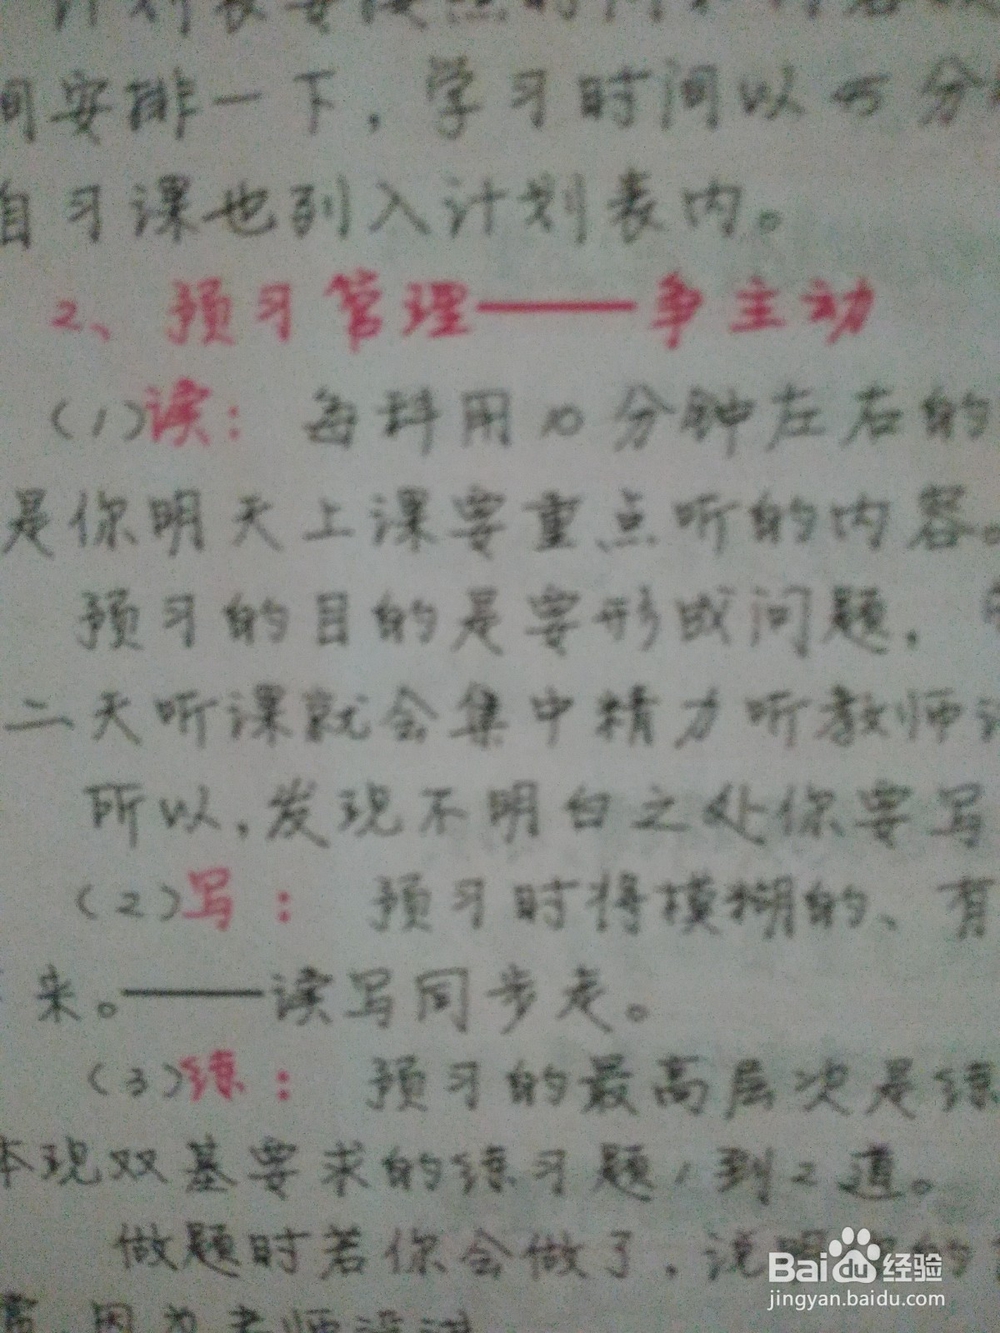 计划表要按照时间和内容
间安排一下，学习时间以45分
自习课也列入计划表内。
2、预习管理——争主动
(1)读：每科用10分钟左右的
是你明天上课要重点听的内容。
预习的目的是要形成问题，
二天听课就会集中精力听教师
所以，发现不明白之处你要写
(2)写：预习时将模糊的、有
来。——读写同步走。
(3)练：预习的最高层次是练
体现双基要求的练习题1到2道。
做题时若你会做了，说明你的
高，因为老师没讲
Baidu 经验
jingyan.baidu.com